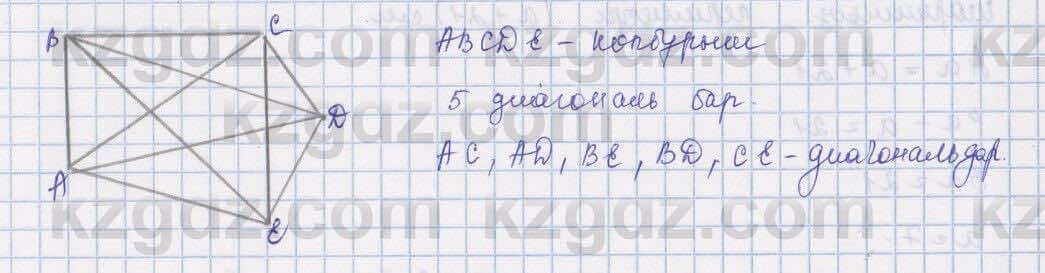 B
C
ABCDE - көпбұрыш
5 диагональ бар.
D
AC, AD, BE, BD, CE - диагональдар.
A
E
kzgdz.com
kzgdz.com
kzgdz.com
kzgdz.com
kzgdz.com